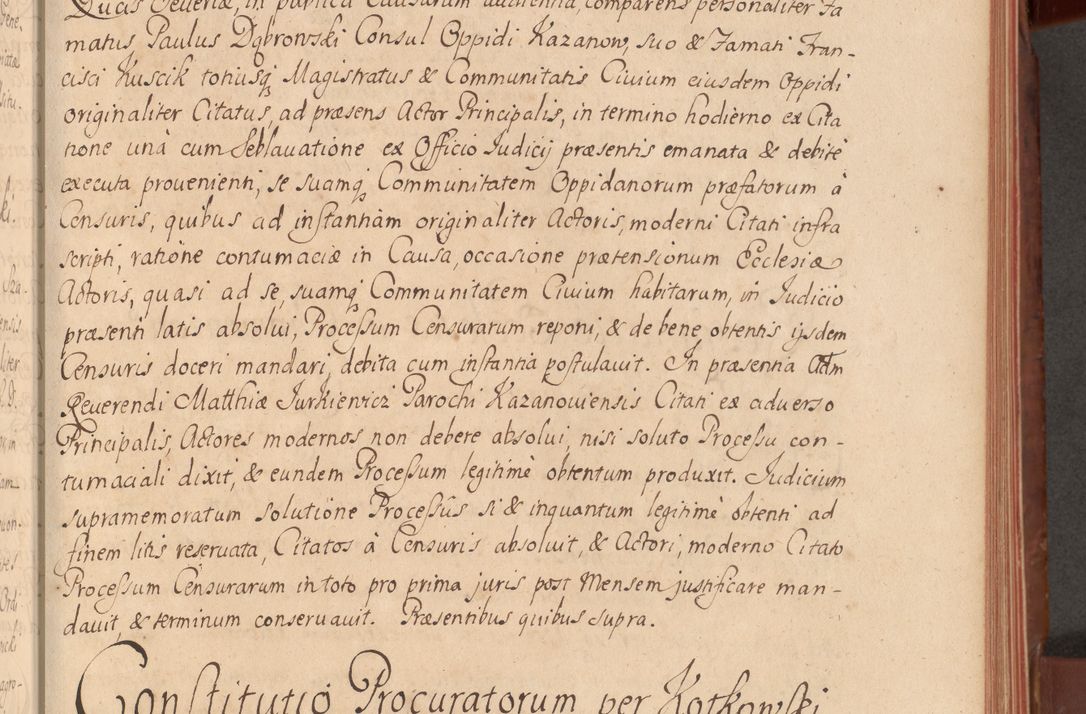 Ducis Severiæ, in publica Causarum audientia, comparens personaliter Fa
matus Paulus Dąbrowski Consul Oppidi Kazanow, suo & Famati Fran-
cisci Kuscik totiusq́ Magistratus & Communitatis Civium eiusdem Oppidi
originaliter Citatus, ad præsens Actor Principalis, in termino hodierno ex Cita
tione unà cum Seblavatione ex Officio Iudicij præsentis emanata & debitè
executa provenienti, se suamq́ Communitatem Oppidanorum præfatorum à
Censuris, quibus ad instantiam originaliter Actoris, moderni Citati infra
scripti, ratione contumaciæ in Causa, occasione prætensionum Ecclesiæ
Actoris, quasi ad se, suamq́ Communitatem Civium habitarum, in Iudicio
præsenti latis absolvi, Processum Censurarum reponi, & de bene obtentis ijsdem
Censuris doceri mandari, debita cum instantia postulavit. In præsentia Adm
Reverendi Matthiæ Iurkiewicz Parochi Kazanoviensis Citati ex adverso
Principalis, Actores modernos non debere absolvi, nisi soluto Processu con-
tumaciali dixit, & eundem Processum legitimè obtentum produxit. Iudicium
supramemoratum solutione Processûs si & inquantum legitimè obtenti ad
finem litis reservata, Citatos à Censuris absolvit, & Actori, moderno Citato
Processum Censurarum in toto pro prima juris post Mensem justificare man-
davit, & terminum conservavit. Præsentibus quibus supra.
Constitutio Procuratorum per Kotkowski